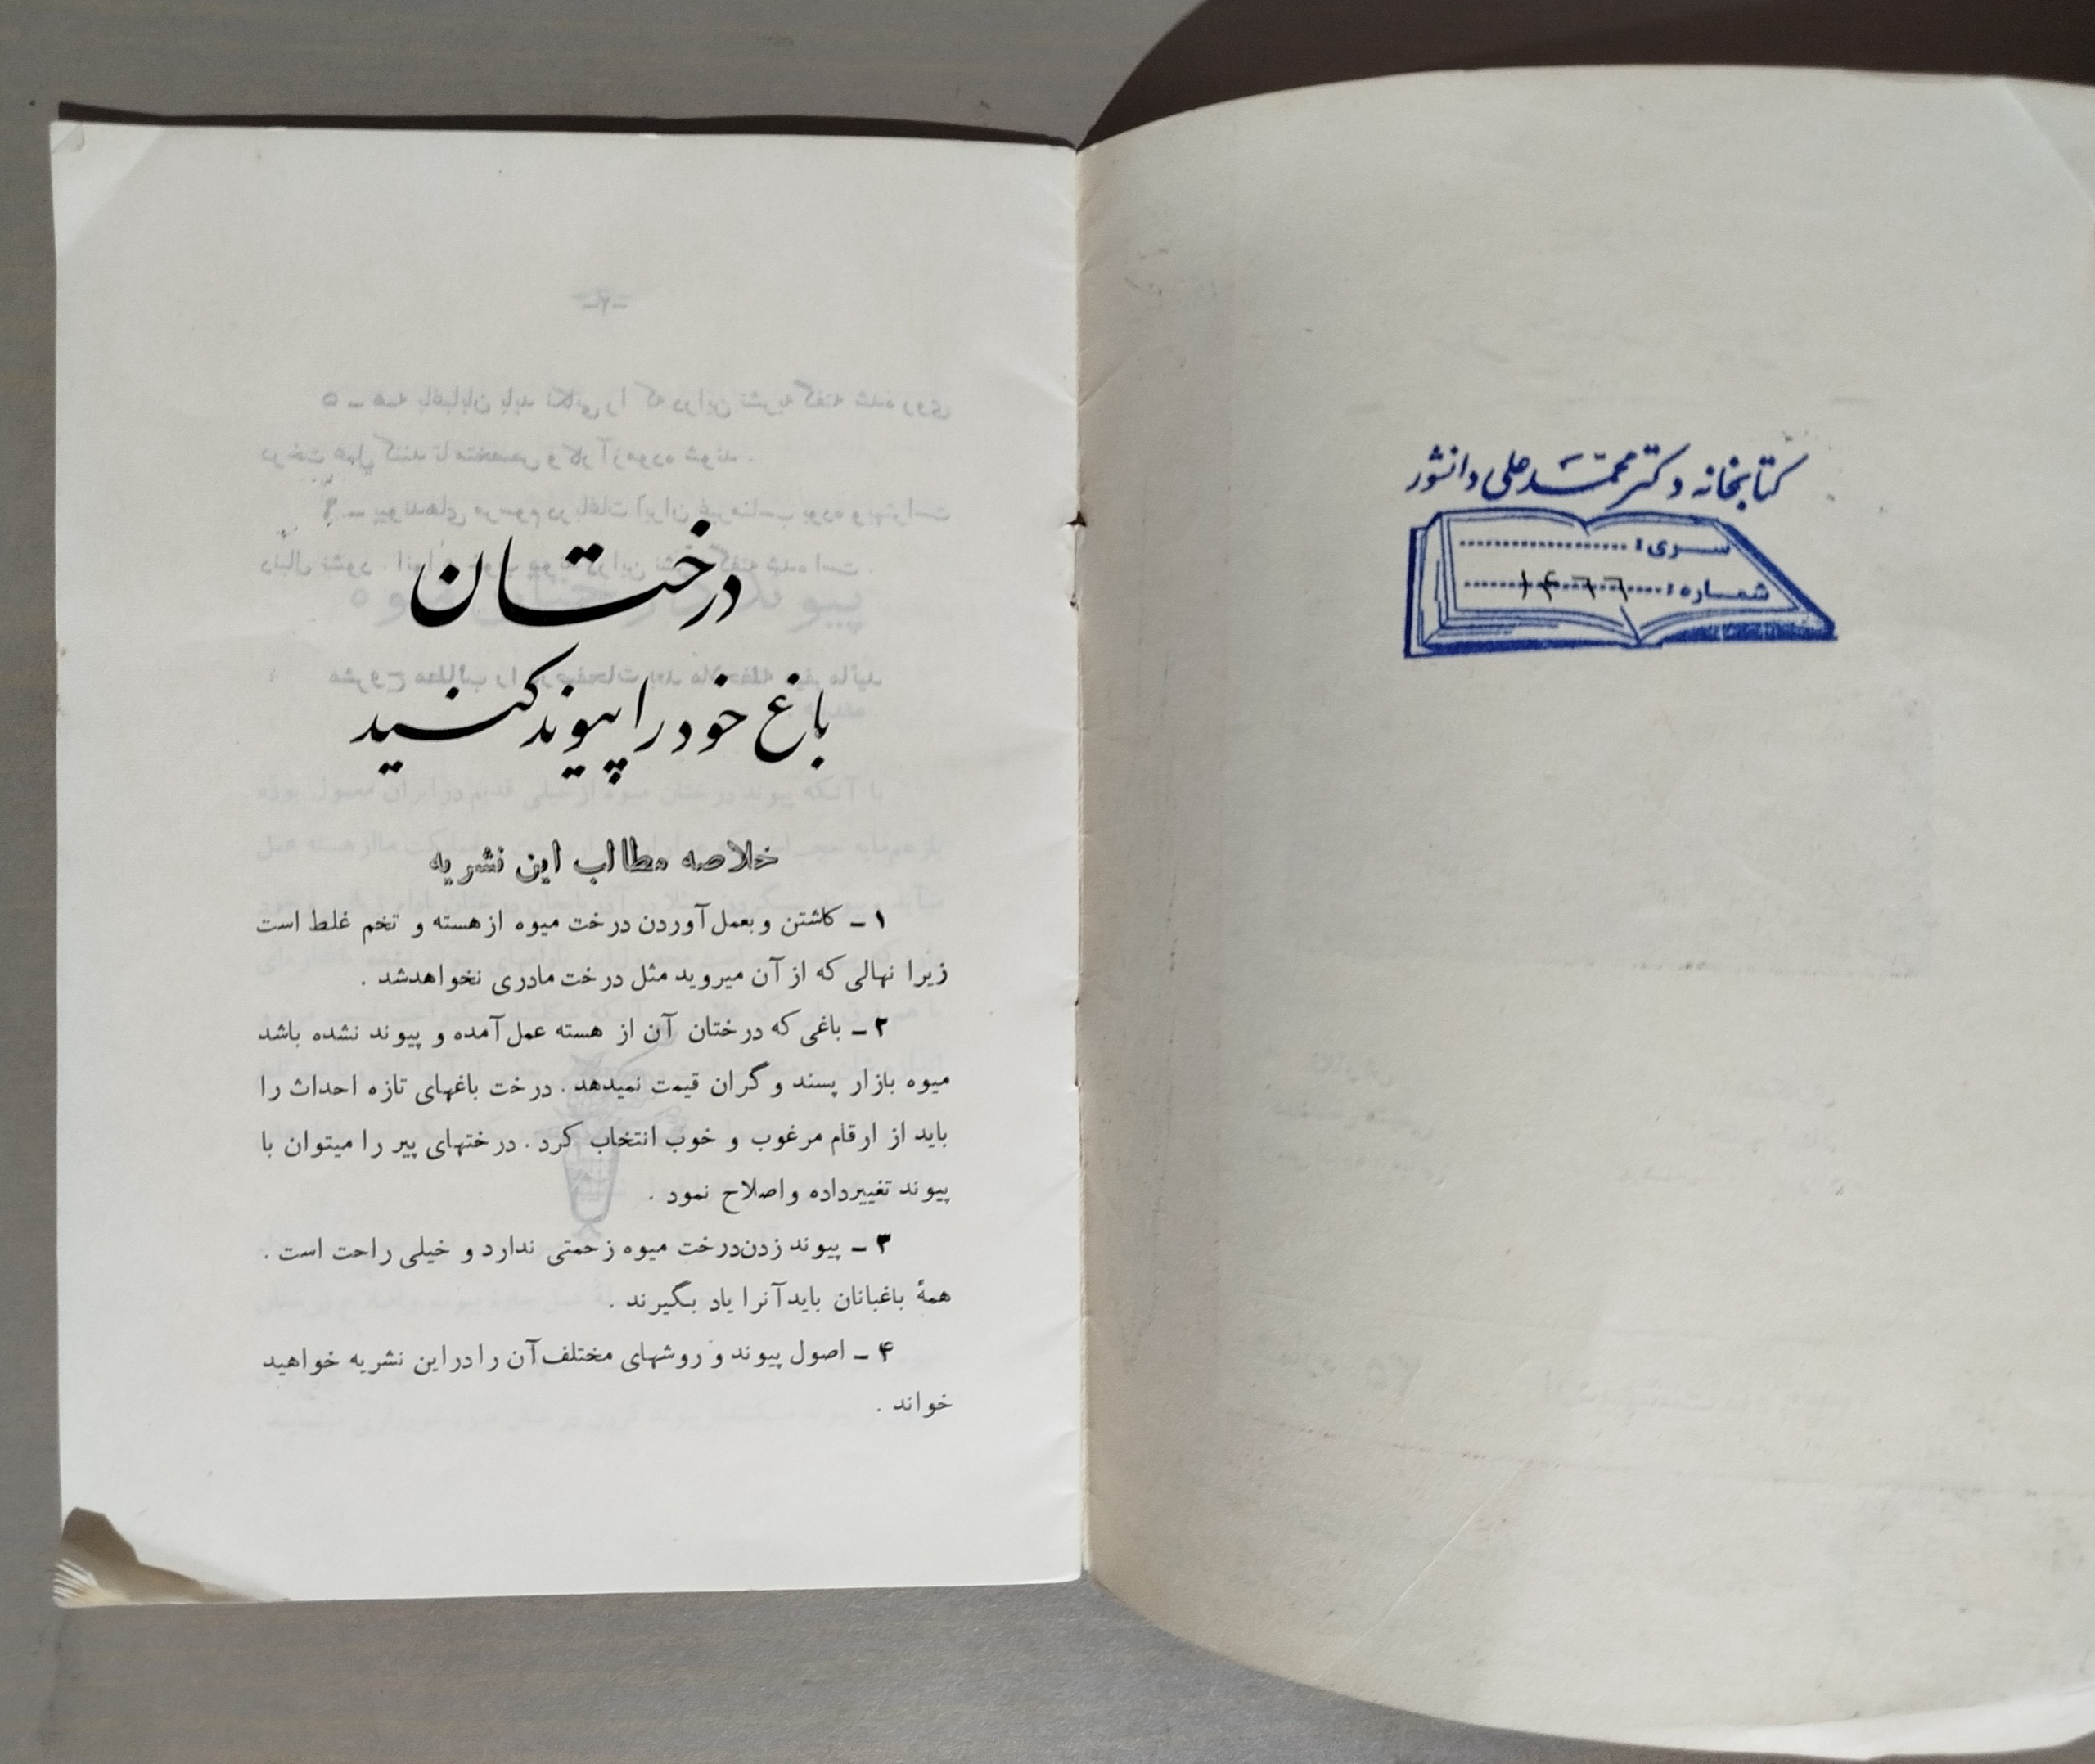 کتابخانه دکتر محمد علی دانشور
سری:
شماره: ۱۴۶۶
درختان
باغ خود را پیوند کنید
خلاصه مطالب این نشریه
۱ ـ کاشتن و بعمل آوردن درخت میوه از هسته و تخم غلط است
زیرا نهالی که از آن میروید مثل درخت مادری نخواهد شد .
۲ ـ باغی که درختان آن از هسته عمل آمده و پیوند نشده باشد
میوه بازار پسند و گران قیمت نمیدهد . درخت باغهای تازه احداث را
باید از ارقام مرغوب و خوب انتخاب کرد . درختهای پیر را میتوان با
پیوند تغییر داده و اصلاح نمود .
۳ ـ پیوند زدن درخت میوه زحمتی ندارد و خیلی راحت است .
همهٔ باغبانان باید آنرا یاد بگیرند .
۴ ـ اصول پیوند و روشهای مختلف آن را در این نشریه خواهید
خواند .